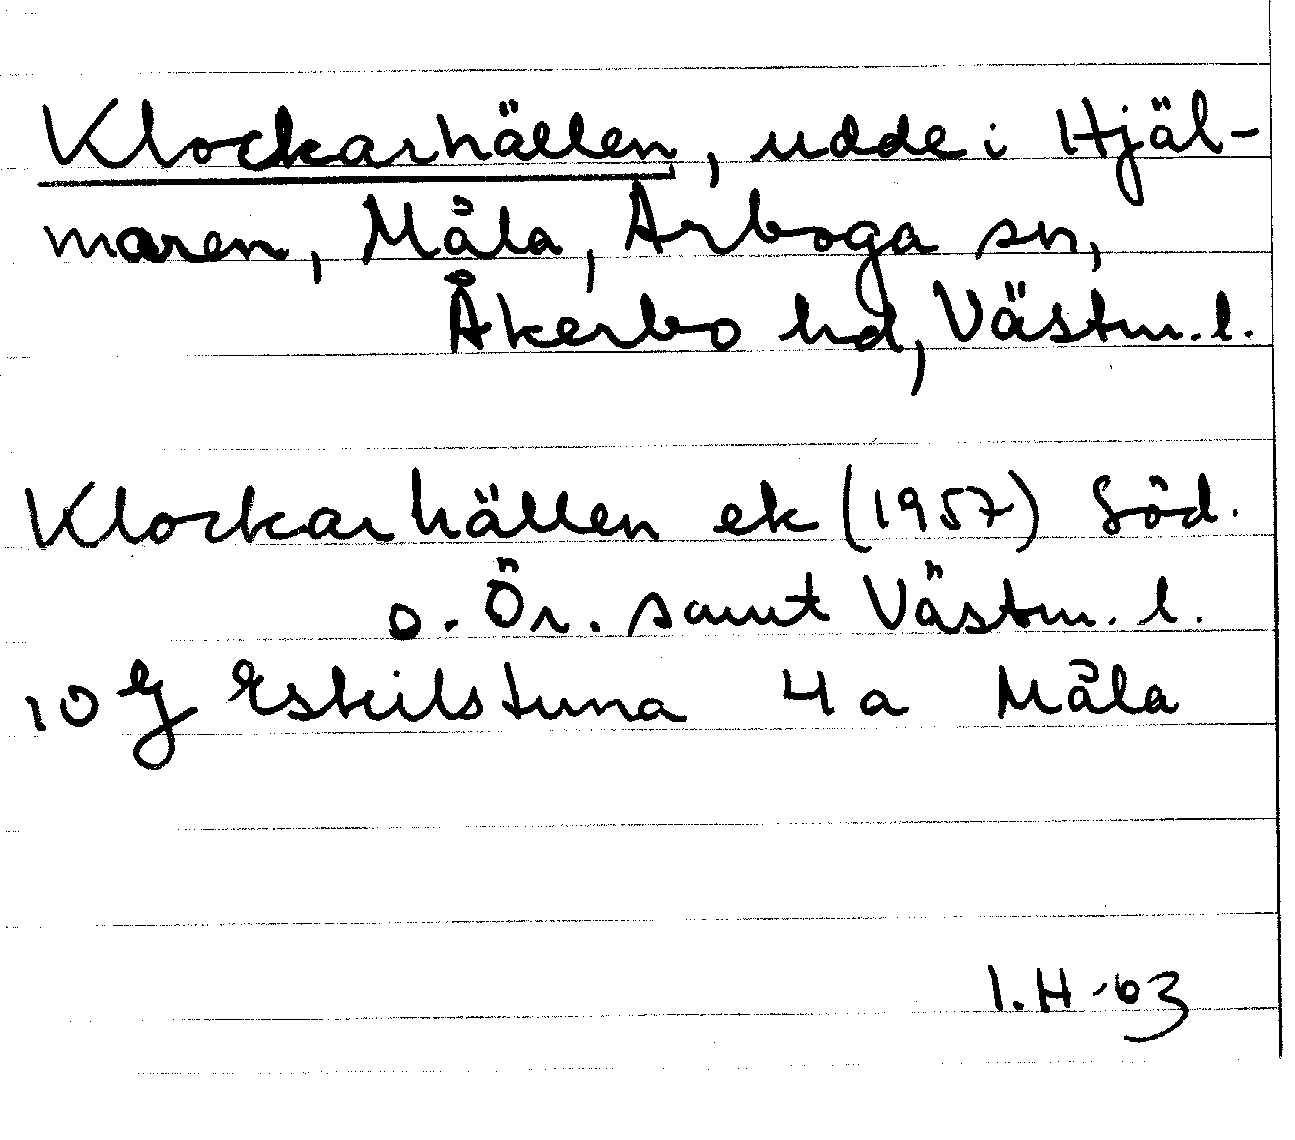 Klockarhällen, udde i Hjäl-
maren, Måla, Arboga sn,
Åkerbo hd, Västm. l.
Klockarhällen ek (1957) Söd.
o. Ör. samt Västm. l.
10 G Eskilstuna 4 a Måla
I.H -63